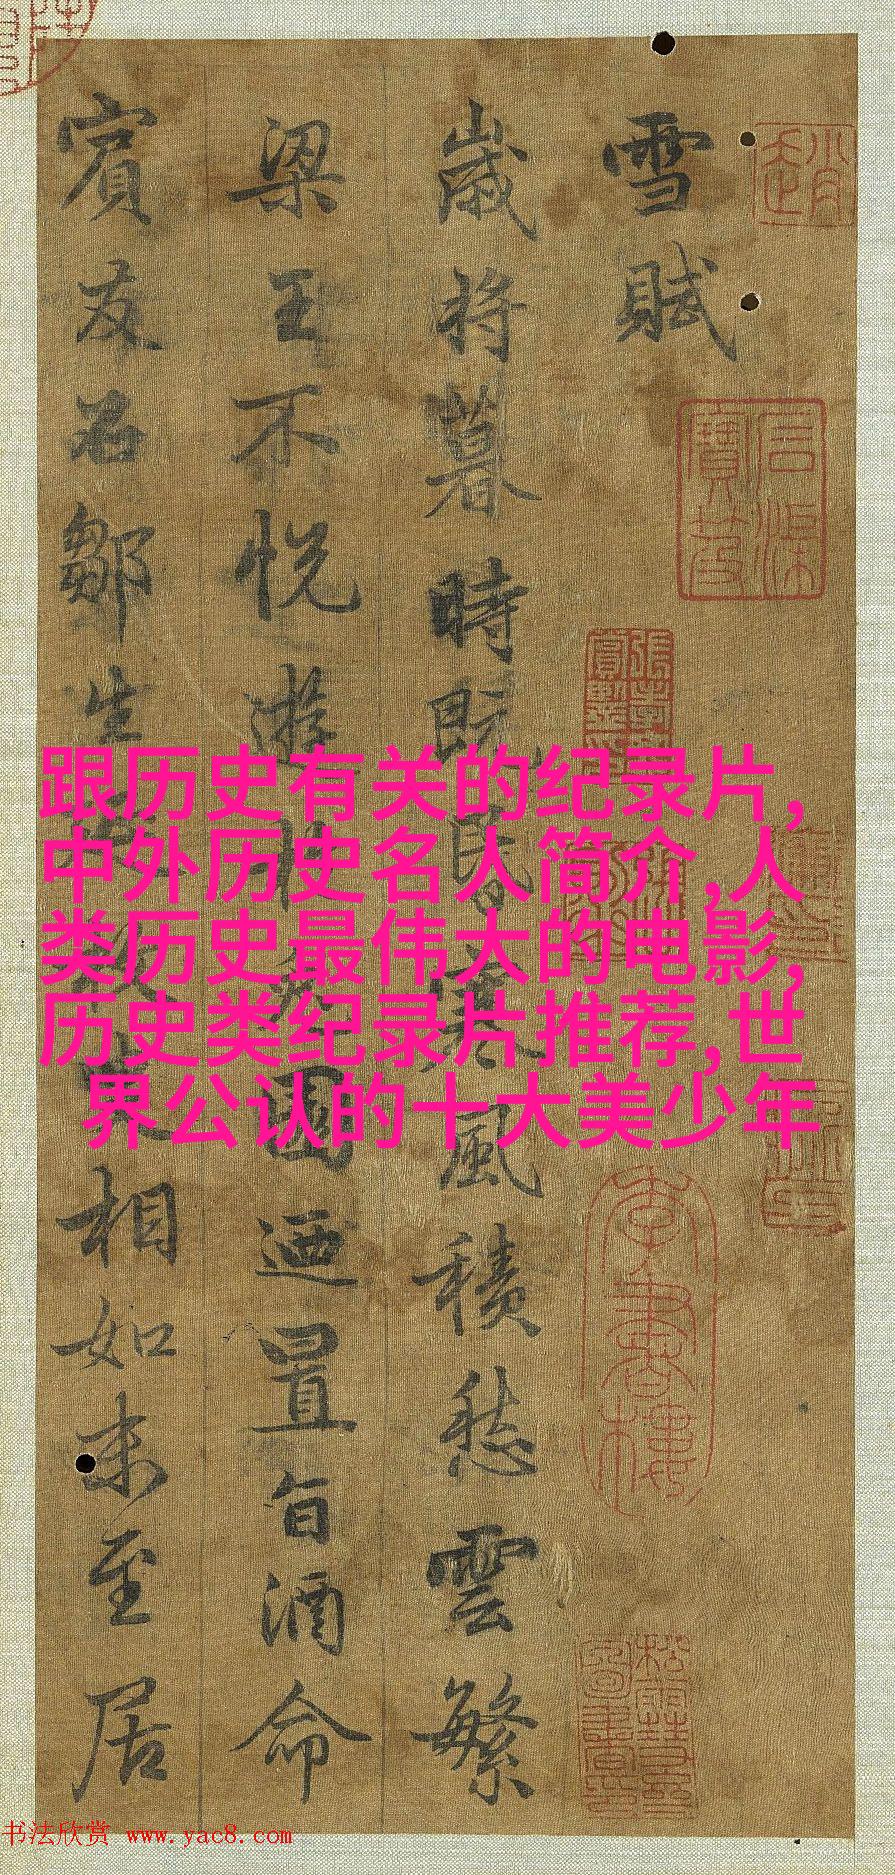 雪賦
歲將暮時既昏寒風積愁雲繁
梁王不悅遊於兔園迺置旨酒命
賓友召鄒生延枚叟相如末至居
跟历史有关的纪录片,
中外历史名人简介,人
类历史最伟大的电影,
历史类纪录片推荐,世
界公认的十大美少年
书法欣赏 www.yac8.com